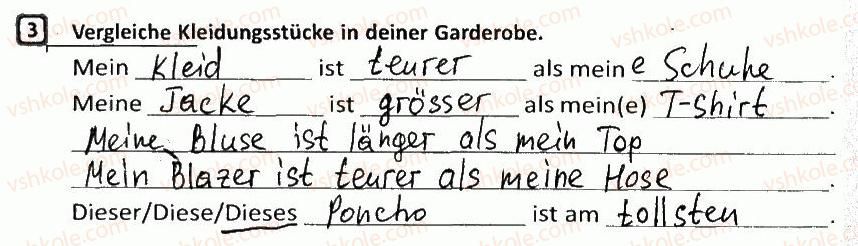 3 Vergleiche Kleidungsstücke in deiner Garderobe.
Mein Kleid ist teurer als meine Schuhe.
Meine Jacke ist grösser als mein(e) T-Shirt.
Meine Bluse ist länger als mein Top
Mein Blazer ist teurer als meine Hose.
Dieser/Diese/Dieses Poncho ist am tollsten.